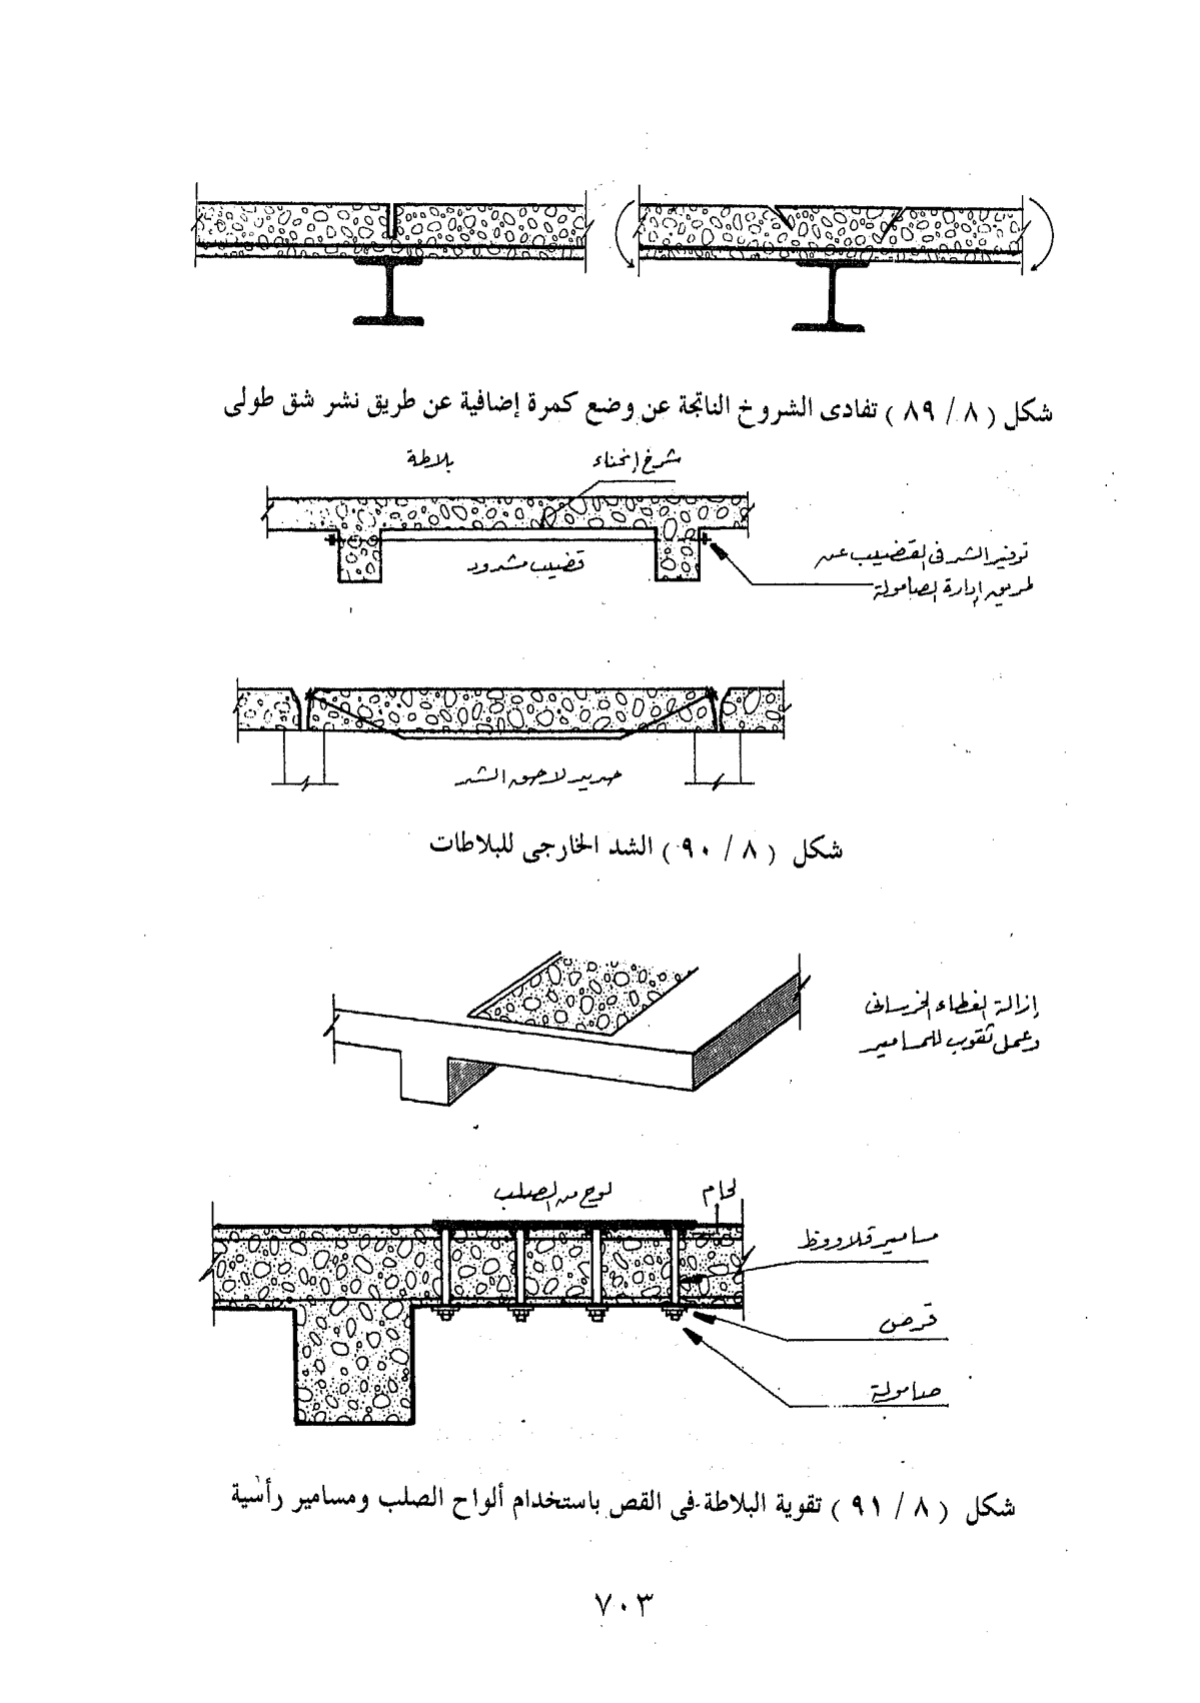 شكل ( ٨ / ٨٩ ) تفادى الشروخ الناتجة عن وضع كمرة إضافية عن طريق نشر شق طولى
شرخ إنحناء
بلاطة
قضيب مشدود
توفير الشد فى القضيب عن
طريق إدارة الصامولة
حديد لاحق الشد
شكل ( ٨ / ٩٠ ) الشد الخارجى للبلاطات
إزالة الغطاء الخرسانى
وعمل ثقوب للمسامير
لوح من الصلب
لحام
مسامير قلاووظ
قرص
صامولة
شكل ( ٨ / ٩١ ) تقوية البلاطة فى القص باستخدام ألواح الصلب ومسامير رأسية
٧٠٣